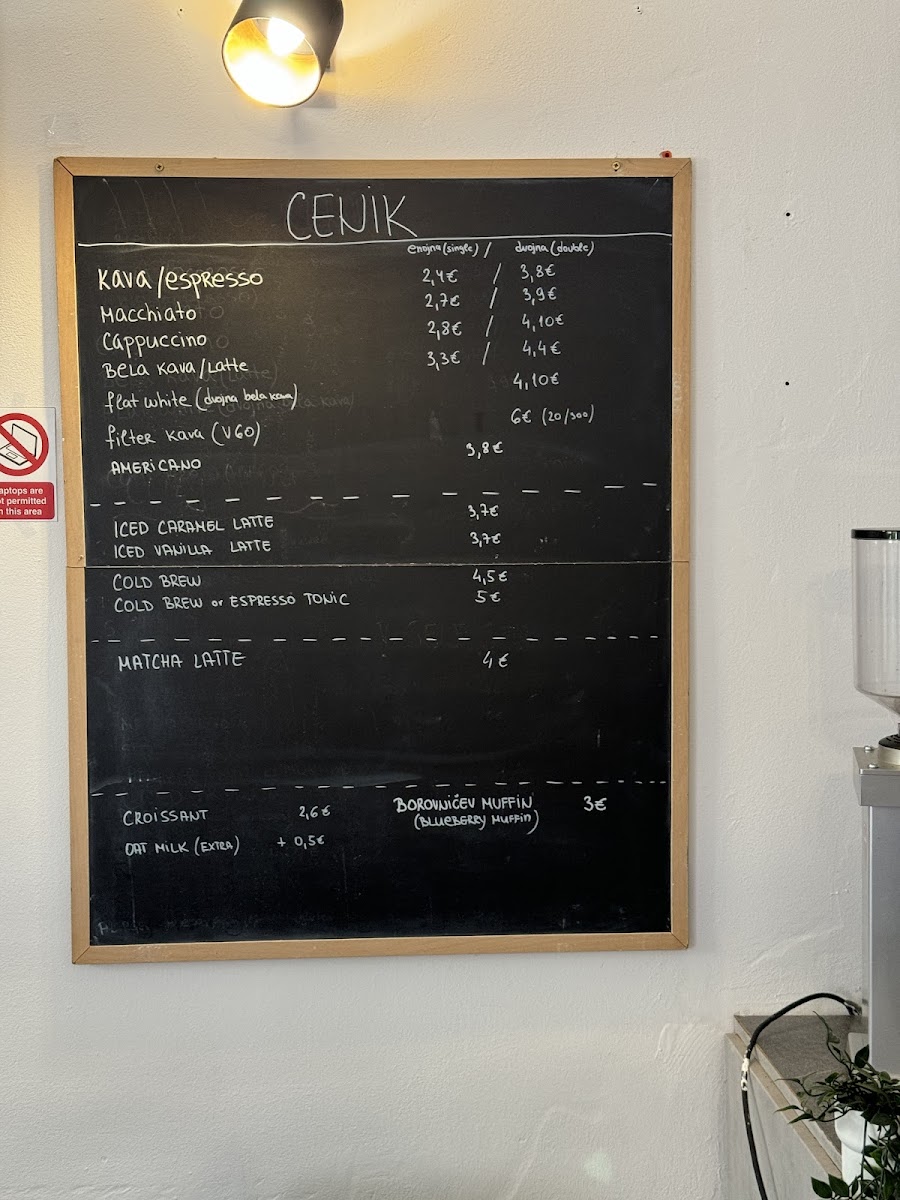 CENIK
enojna (single) / dvojna (double)
Kava/espresso 2,4€ / 3,8€
Macchiato 2,7€ / 3,9€
Cappuccino 2,8€ / 4,10€
Bela kava/Latte 3,3€ / 4,4€
flat white (dvojna bela kava) 4,10€
filter kava (V60) 6€ (20/300)
AMERICANO 3,8€
ICED CARAMEL LATTE 3,7€
ICED VANILLA LATTE 3,7€
COLD BREW 4,5€
COLD BREW or ESPRESSO TONIC 5€
MATCHA LATTE 4€
CROISSANT 2,6€ BOROVNIČEV MUFFIN 3€
(BLUEBERRY MUFFIN)
OAT MILK (EXTRA) + 0,5€
aptops are
t permitted
this area